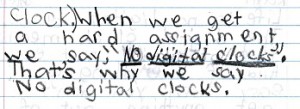 clock, When we get
a hard assignment,
we say, "NO digital clocks".
That's why we say
No digital clocks.